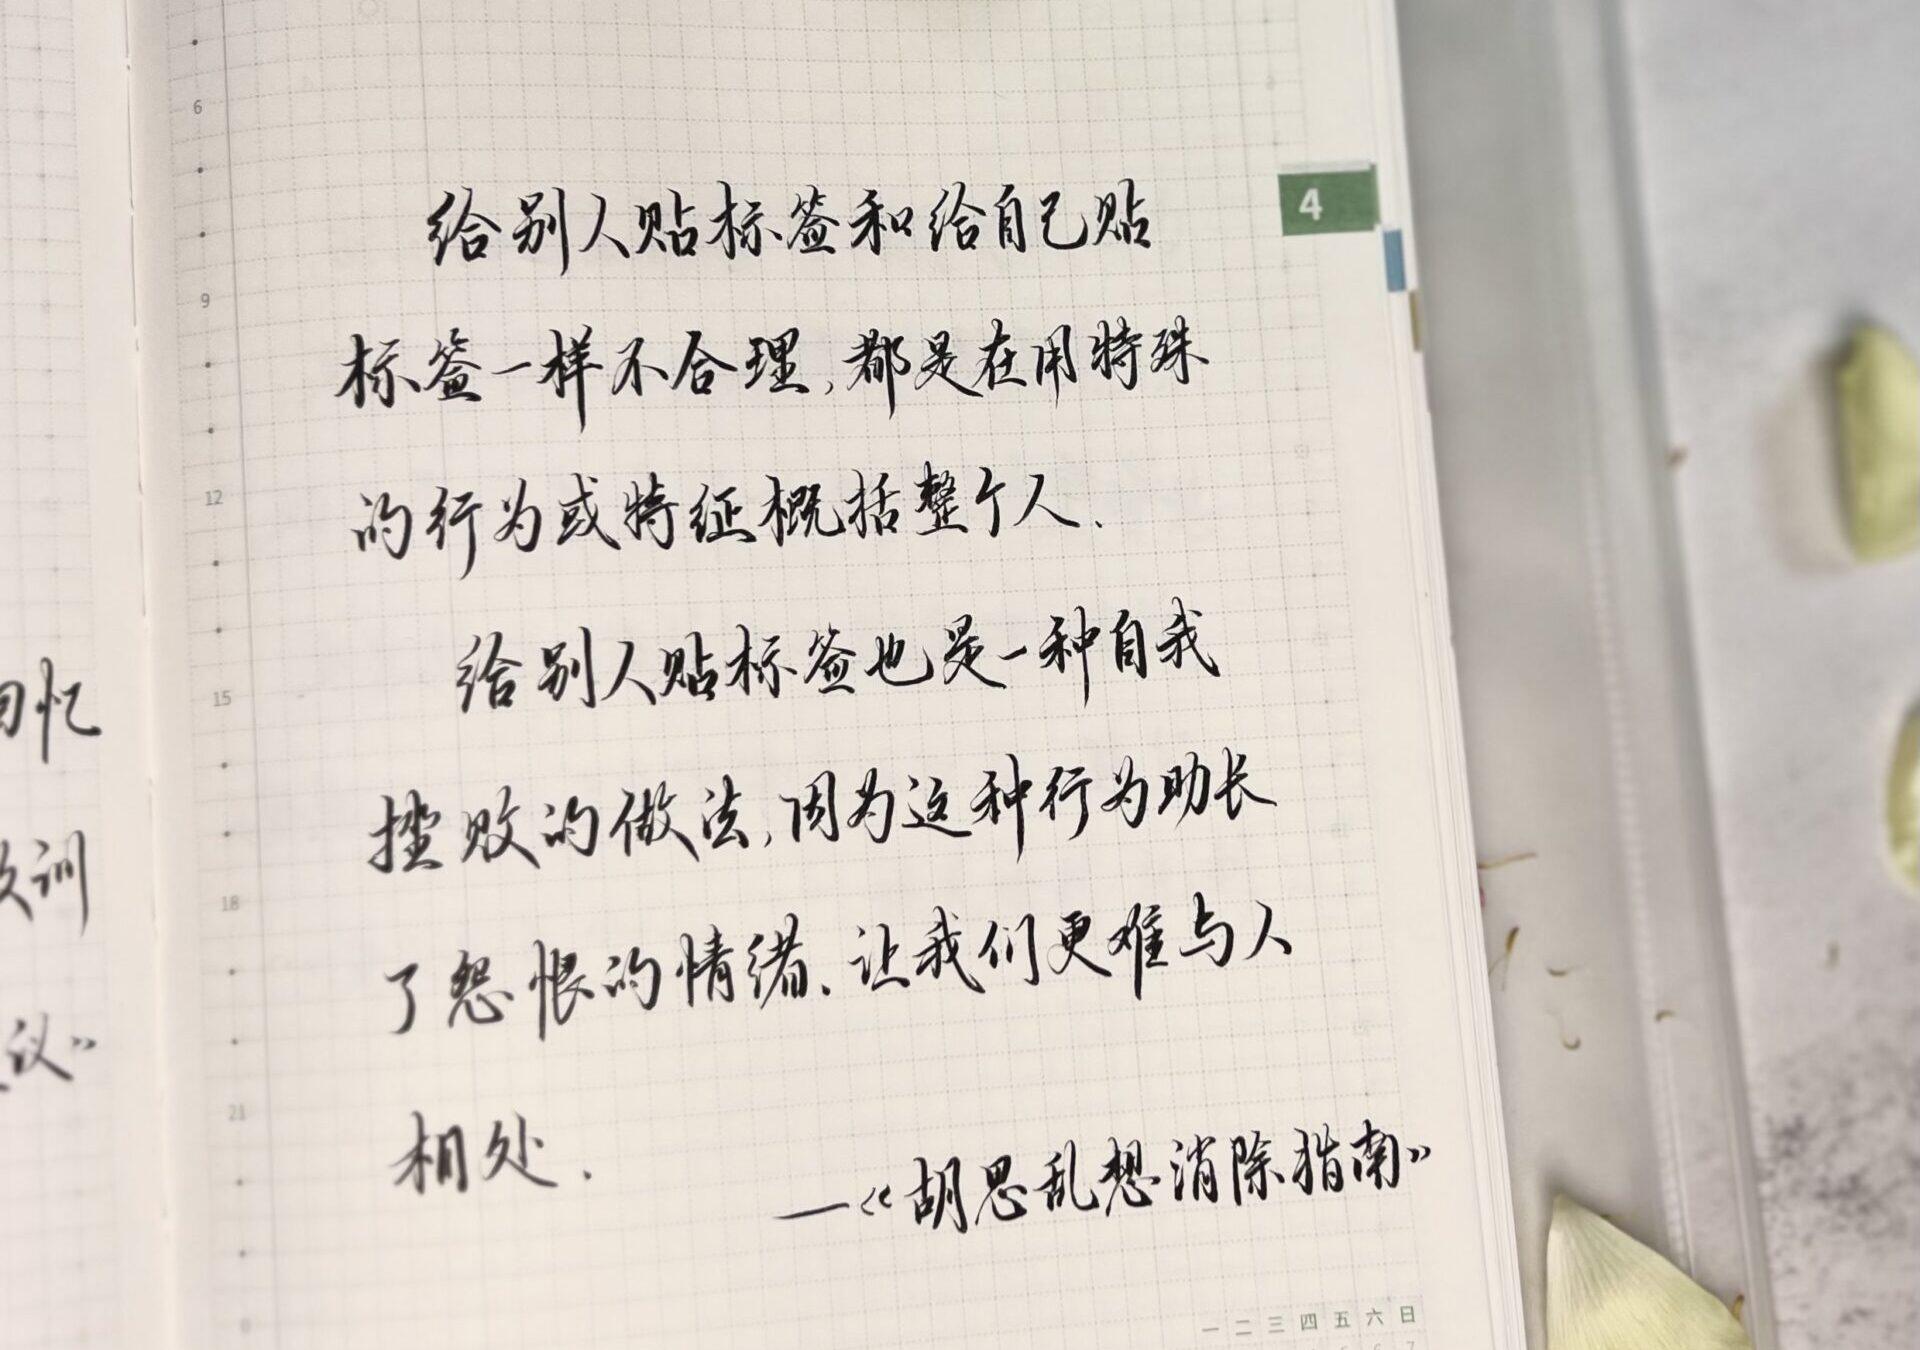 回忆
训
议》
6
9
12
15
18
21
4
给别人贴标签和给自己贴
标签一样不合理,都是在用特殊
的行为或特征概括整个人.
给别人贴标签也是一种自我
挫败的做法,因为这种行为助长
了怨恨的情绪.让我们更难与人
相处.
—《胡思乱想消除指南》
一 二 三 四 五 六 日